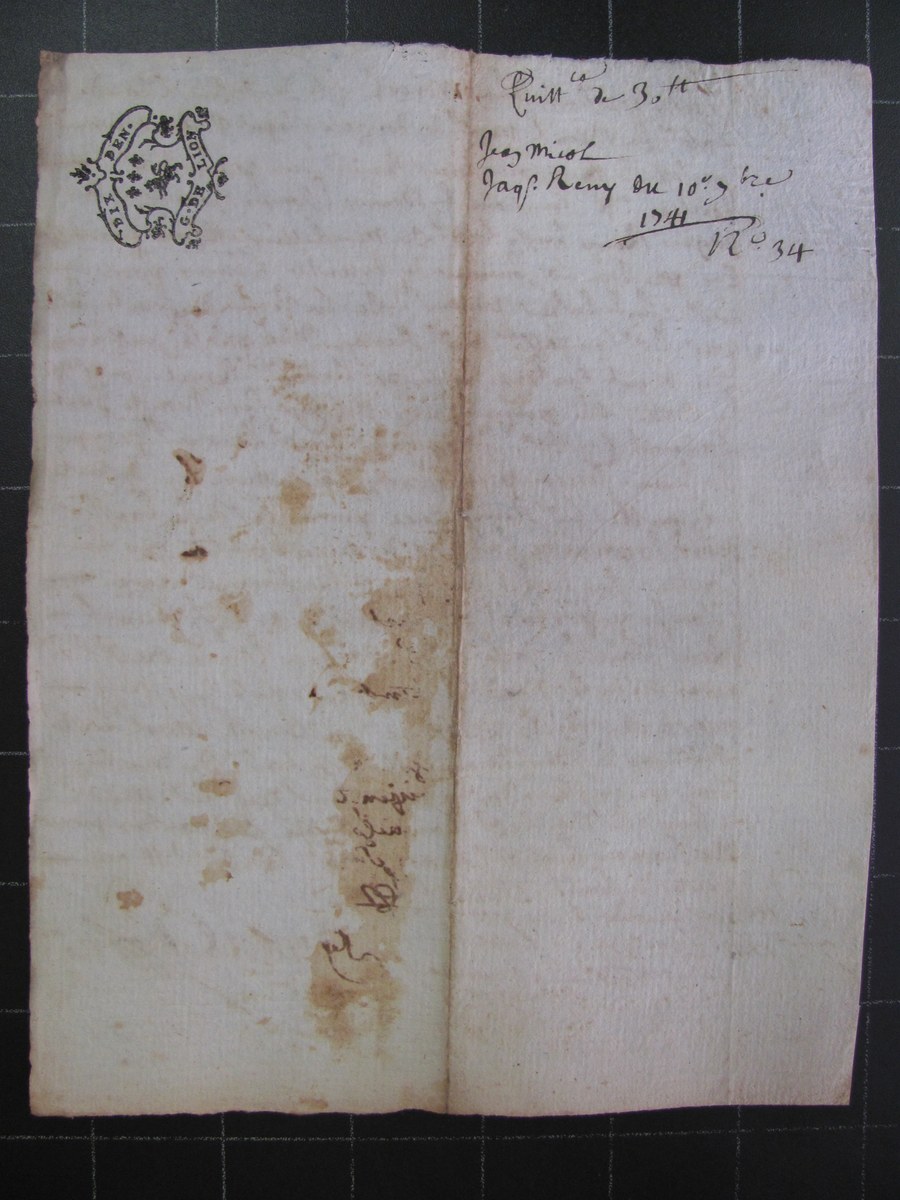 DIX DEN.
G. DE LION
Quitt.ce de 30 tt
Jean Micol
Jaqs. Remy du 10e 7bre
1741
No. 34